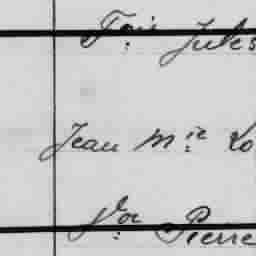 Fçis Jules
Jean M.ie Lo
N.or Pierre